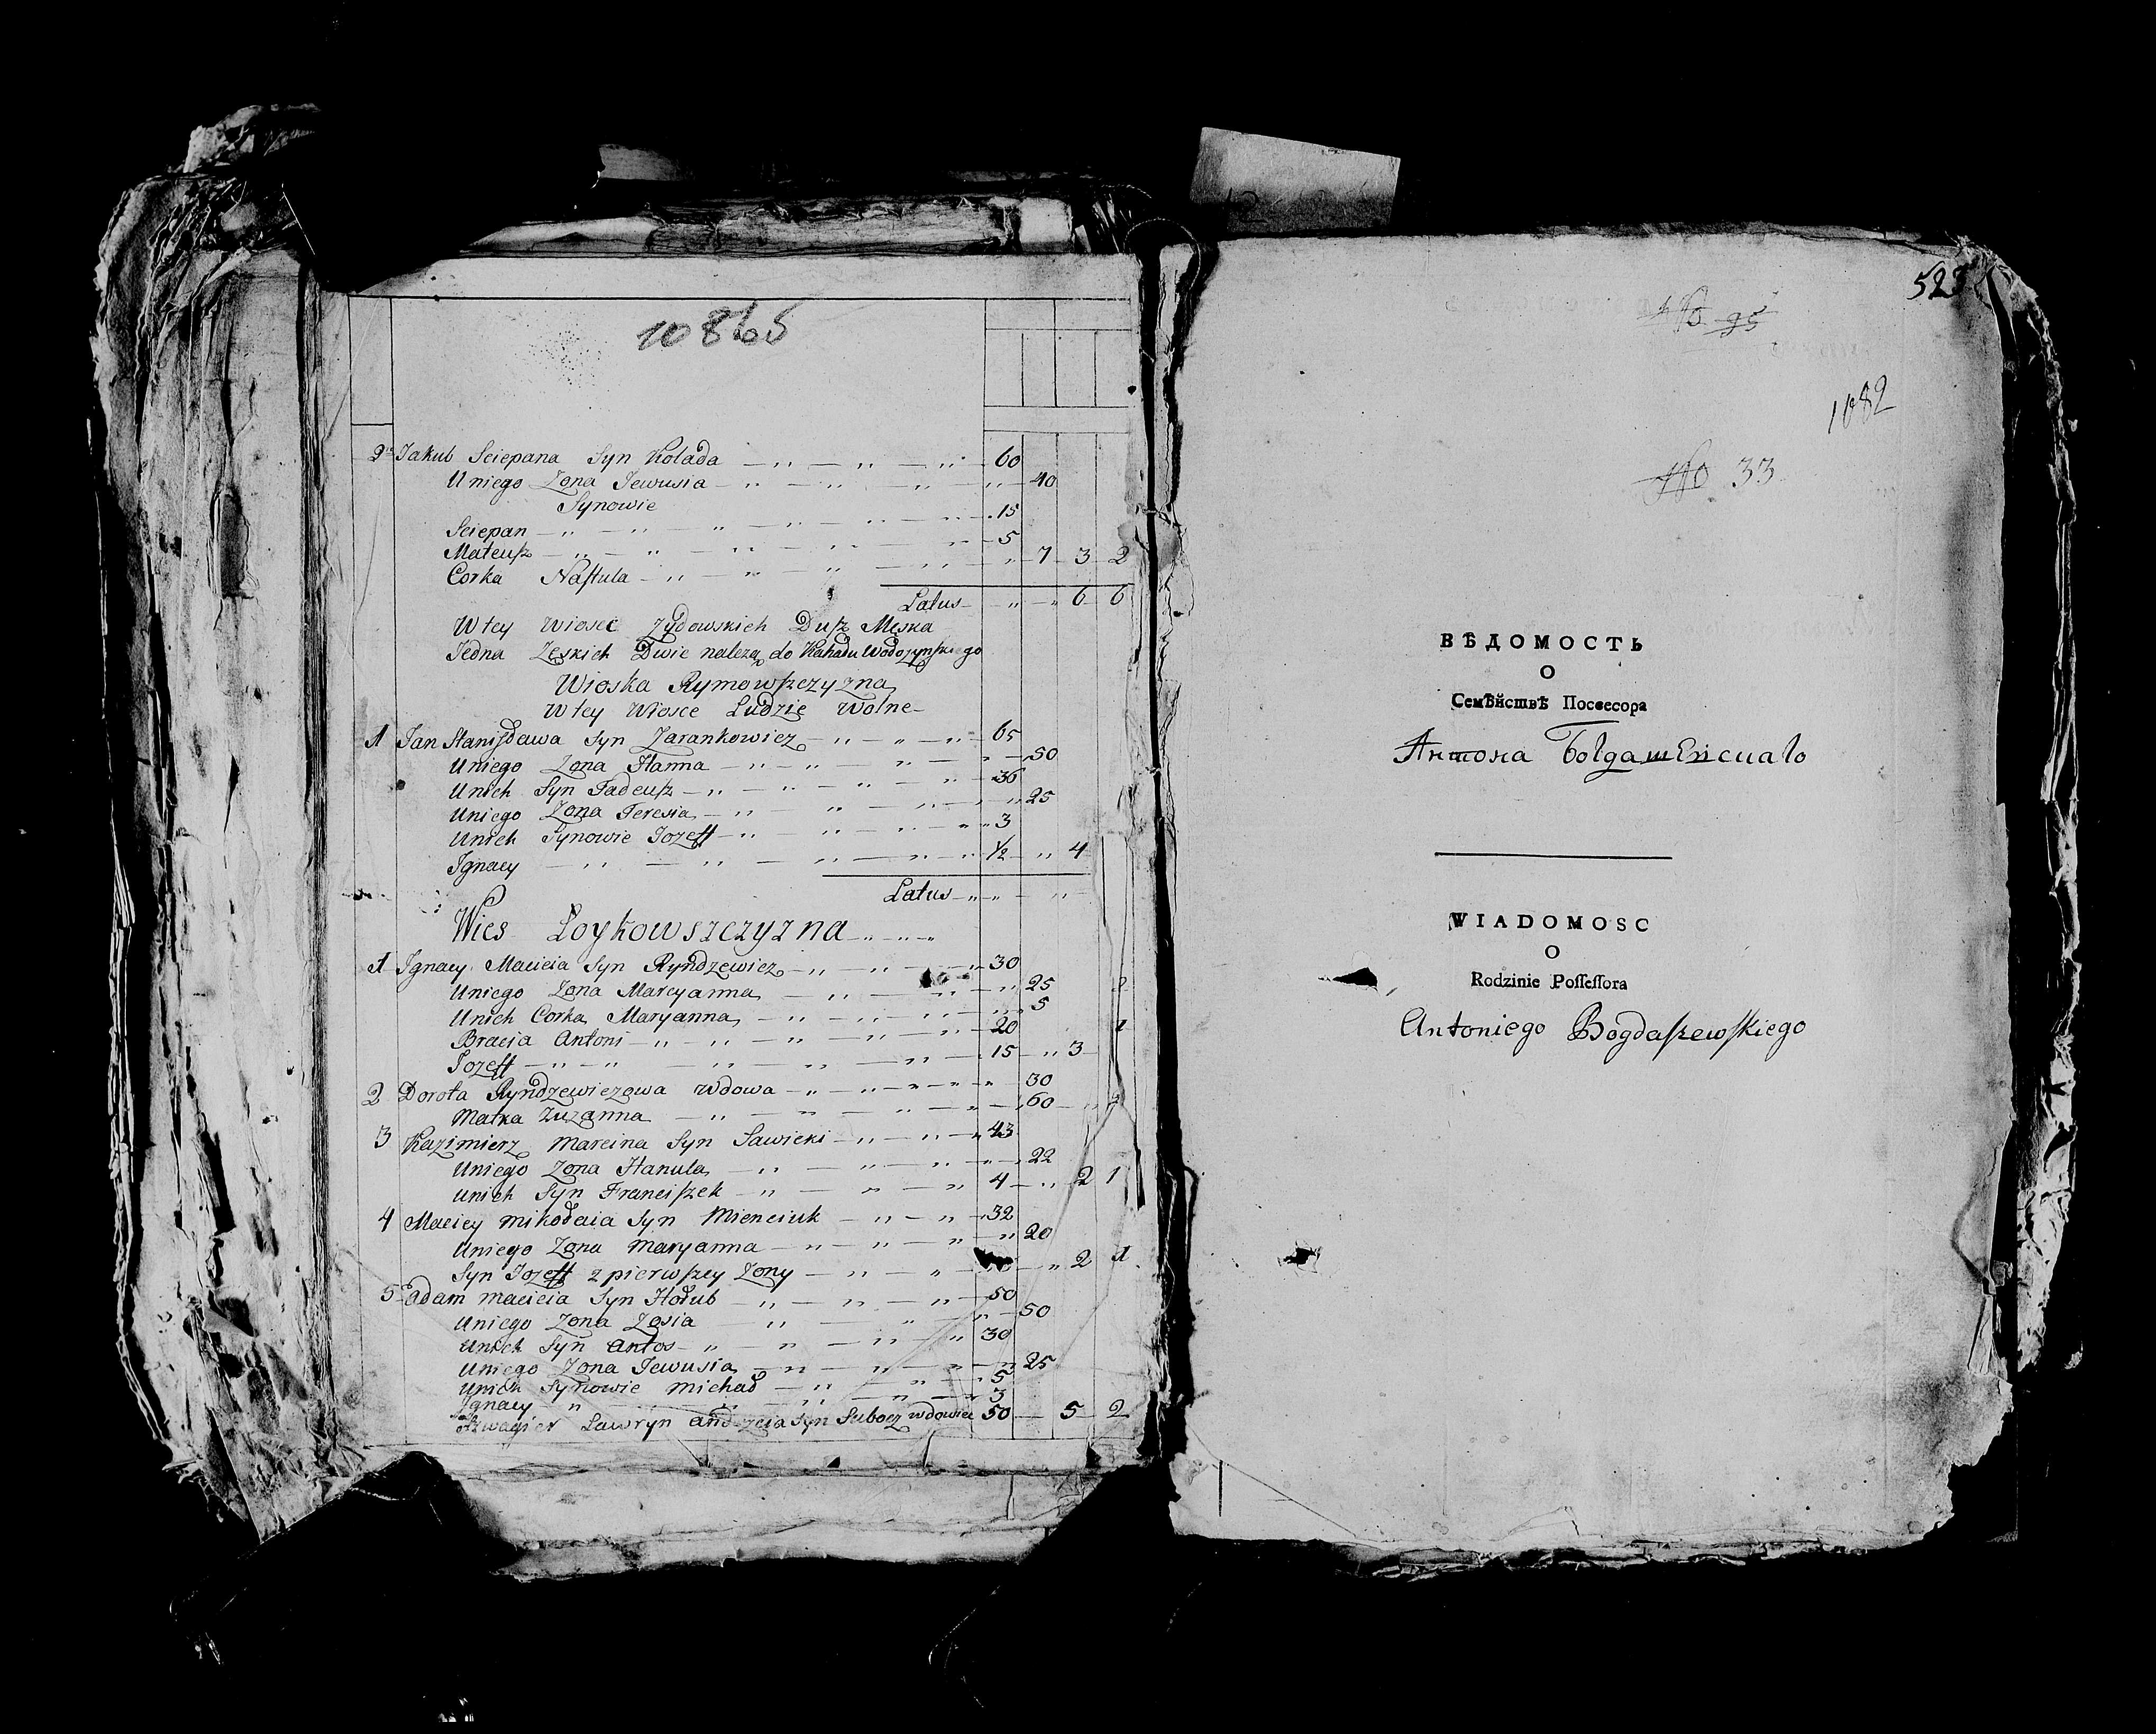 10865
2 Jakub Sciepana Syn Kolada 60
Uniego Zona Jewusia 40
Synowie
Sciepan 15
Mateusz 5
Corka Nastula 7 3 2
Latus 6 6
Wtey Wiosce Zydowskich Dusz Męska
Jedna Zęskich Dwie nalezą do Kahadu
Wioska Rymowszczyzna
Wtey Wiosce Ludzie Wolne
1 Jan Stanisława Syn Zarankowicz 65
Uniego Zona Hanna 50
Unich Syn Tadeusz 36
Uniego Zona Teresia 25
Unich Synowie Jozeff 3
Ignacy 1/2 4
Latus
Wies Łoykowszczyzna
1 Ignacy Macieia Syn Ryndzewicz 30
Uniego Zona Marcyanna 25
Unich Corka Maryanna 5
Bracia Antoni 20 1
Jozeff 15 3
2 Dorota Ryndzewiczowa Wdowa 30
Matka Zuzanna 60
3 Kazimierz Marcina Syn Sawicki 43
Uniego Zona Hanula 22
Unich Syn Franciszek 4 2 1
4 Maciey Mikołaia Syn Mienciuk 32
Uniego Zona Maryanna 20
Syn Jozeff z pierwszey Zony 2 1
5 Adam Macieia Syn Hołub 50
Uniego Zona Zosia 50
Unich Syn Antos 30
Uniego Zona Jewusia 25
Unich Synowie Michał 5
Ignacy 3
Szwagier Ławryn Andrzeia Syn Subocz wdowiec 50 5 2
523
No 95
1082
No 33
ВѢДОМОСТЬ
О
Семѣйствѣ Поссесора
Антона
WIADOMOSC
O
Rodzinie Possessora
Antoniego Bogdaszewskiego